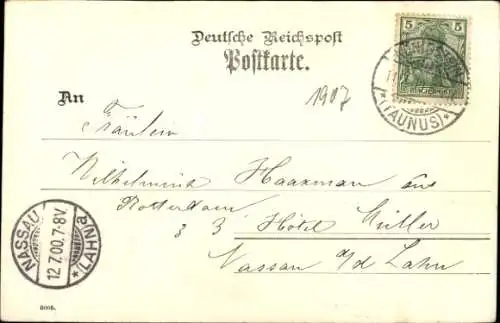 Deutsche Reichspost
Postkarte.
5 5
REICHSPOST
(TAUNUS)
1907
An
Fräulein
Wilhelmina Haaxman aus
Rotterdam
z Z Hôtel Müller
Nassau a/d Lahn
NASSAU
12.7.00.7-8V
* (LAHN) a
8005.